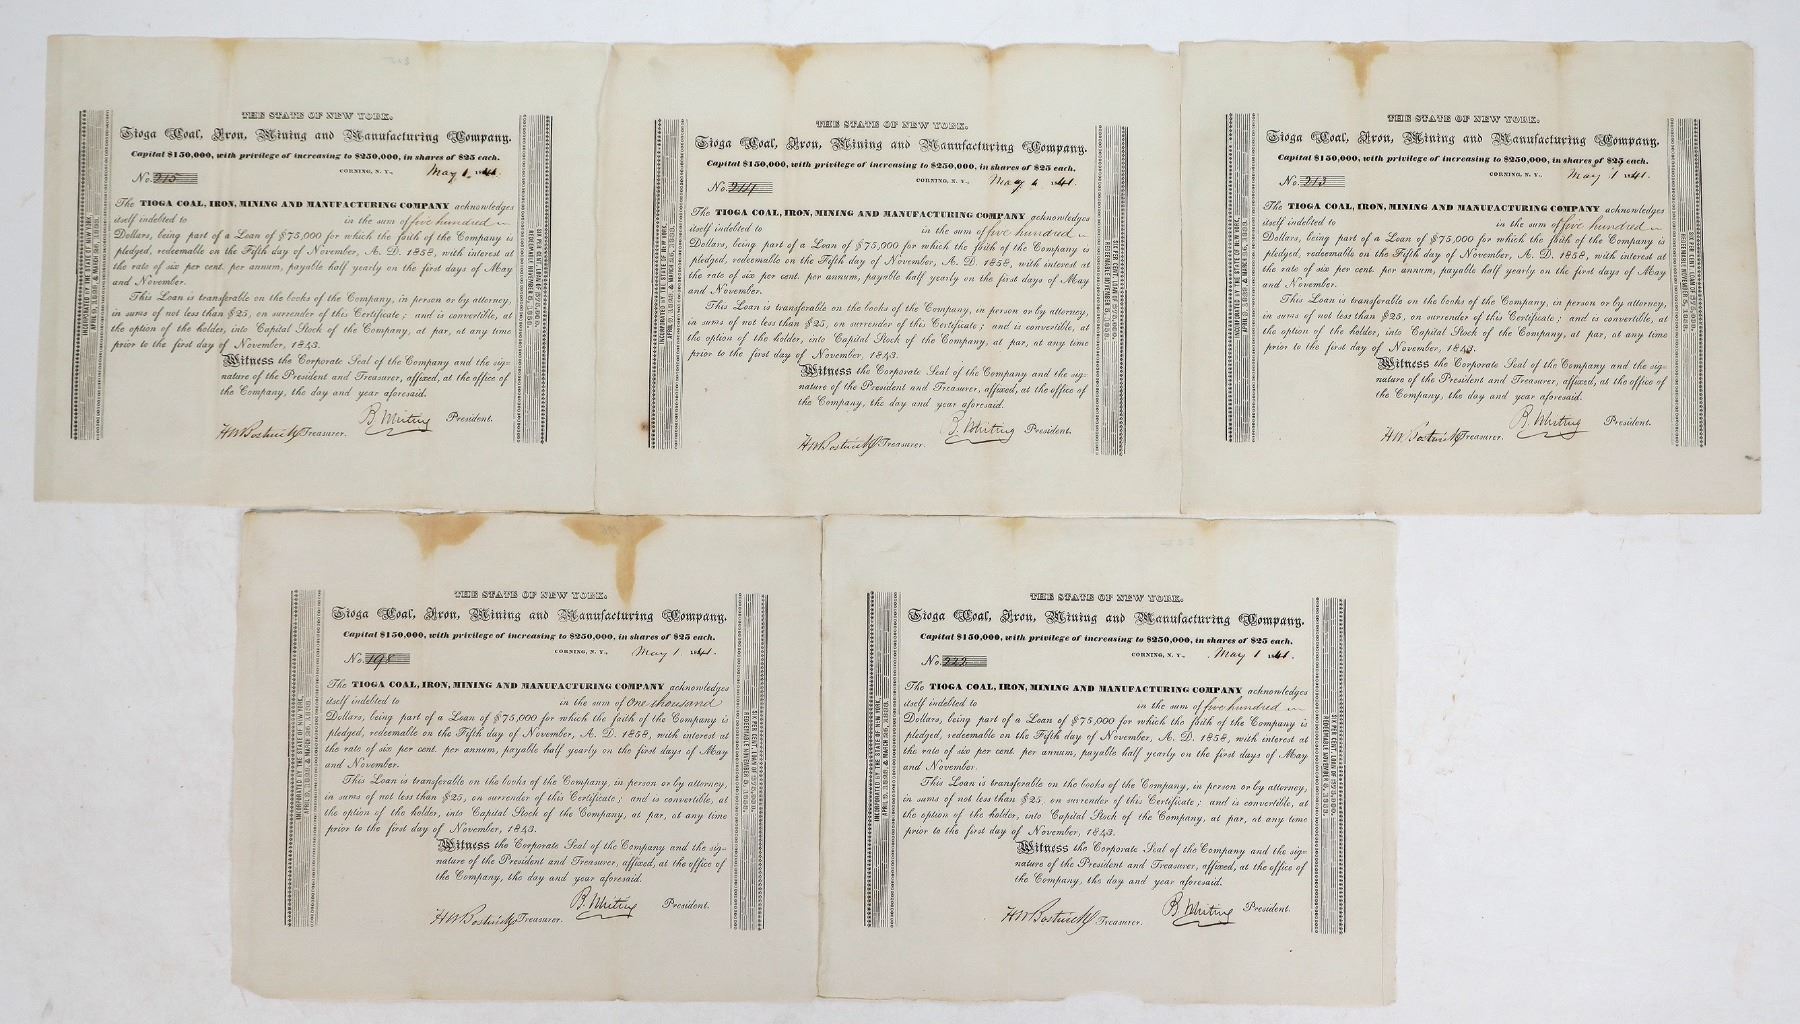 THE STATE OF NEW YORK.
Tioga Coal, Iron, Mining and Manufacturing Company.
Capital $150,000, with privilege of increasing to $250,000, in shares of $25 each.
No. 215
CORNING, N. Y., May 1 1841.
The TIOGA COAL, IRON, MINING AND MANUFACTURING COMPANY acknowledges
itself indebted to in the sum of five hundred
Dollars, being part of a Loan of $75,000 for which the faith of the Company is
pledged, redeemable on the Fifth day of November, A. D. 1858, with interest at
the rate of six per cent. per annum, payable half yearly on the first days of May
and November.
This Loan is transferable on the books of the Company, in person or by attorney,
in sums of not less than $25, on surrender of this Certificate; and is convertible, at
the option of the holder, into Capital Stock of the Company, at par, at any time
prior to the first day of November, 1843.
Witness the Corporate Seal of the Company and the sig-
nature of the President and Treasurer, affixed, at the office of
the Company, the day and year aforesaid.
B. Whiting President.
H W Bostwick Treasurer.
INCORPORATED BY THE STATE OF NEW YORK,
SIX PER CENT. LOAN OF $75,000,
REDEEMABLE NOVEMBER 5, 1858.
THE STATE OF NEW YORK.
Tioga Coal, Iron, Mining and Manufacturing Company.
Capital $150,000, with privilege of increasing to $250,000, in shares of $25 each.
No. 214
CORNING, N. Y., May 1 1841.
The TIOGA COAL, IRON, MINING AND MANUFACTURING COMPANY acknowledges
itself indebted to in the sum of five hundred
Dollars, being part of a Loan of $75,000 for which the faith of the Company is
pledged, redeemable on the Fifth day of November, A. D. 1858, with interest at
the rate of six per cent. per annum, payable half yearly on the first days of May
and November.
This Loan is transferable on the books of the Company, in person or by attorney,
in sums of not less than $25, on surrender of this Certificate; and is convertible, at
the option of the holder, into Capital Stock of the Company, at par, at any time
prior to the first day of November, 1843.
Witness the Corporate Seal of the Company and the sig-
nature of the President and Treasurer, affixed, at the office of
the Company, the day and year aforesaid.
B. Whiting President.
H W Bostwick Treasurer.
INCORPORATED BY THE STATE OF NEW YORK,
SIX PER CENT. LOAN OF $75,000,
REDEEMABLE NOVEMBER 5, 1858.
THE STATE OF NEW YORK.
Tioga Coal, Iron, Mining and Manufacturing Company.
Capital $150,000, with privilege of increasing to $250,000, in shares of $25 each.
No. 213
CORNING, N. Y., May 1 1841.
The TIOGA COAL, IRON, MINING AND MANUFACTURING COMPANY acknowledges
itself indebted to in the sum of five hundred
Dollars, being part of a Loan of $75,000 for which the faith of the Company is
pledged, redeemable on the Fifth day of November, A. D. 1858, with interest at
the rate of six per cent. per annum, payable half yearly on the first days of May
and November.
This Loan is transferable on the books of the Company, in person or by attorney,
in sums of not less than $25, on surrender of this Certificate; and is convertible, at
the option of the holder, into Capital Stock of the Company, at par, at any time
prior to the first day of November, 1843.
Witness the Corporate Seal of the Company and the sig-
nature of the President and Treasurer, affixed, at the office of
the Company, the day and year aforesaid.
B. Whiting President.
H W Bostwick Treasurer.
INCORPORATED BY THE STATE OF NEW YORK,
SIX PER CENT. LOAN OF $75,000,
REDEEMABLE NOVEMBER 5, 1858.
THE STATE OF NEW YORK.
Tioga Coal, Iron, Mining and Manufacturing Company.
Capital $150,000, with privilege of increasing to $250,000, in shares of $25 each.
No. 198
CORNING, N. Y., May 1 1841.
The TIOGA COAL, IRON, MINING AND MANUFACTURING COMPANY acknowledges
itself indebted to in the sum of One thousand
Dollars, being part of a Loan of $75,000 for which the faith of the Company is
pledged, redeemable on the Fifth day of November, A. D. 1858, with interest at
the rate of six per cent. per annum, payable half yearly on the first days of May
and November.
This Loan is transferable on the books of the Company, in person or by attorney,
in sums of not less than $25, on surrender of this Certificate; and is convertible, at
the option of the holder, into Capital Stock of the Company, at par, at any time
prior to the first day of November, 1843.
Witness the Corporate Seal of the Company and the sig-
nature of the President and Treasurer, affixed, at the office of
the Company, the day and year aforesaid.
B. Whiting President.
H W Bostwick Treasurer.
INCORPORATED BY THE STATE OF NEW YORK,
SIX PER CENT. LOAN OF $75,000,
REDEEMABLE NOVEMBER 5, 1858.
THE STATE OF NEW YORK.
Tioga Coal, Iron, Mining and Manufacturing Company.
Capital $150,000, with privilege of increasing to $250,000, in shares of $25 each.
No. 222
CORNING, N. Y., May 1 1841.
The TIOGA COAL, IRON, MINING AND MANUFACTURING COMPANY acknowledges
itself indebted to in the sum of five hundred
Dollars, being part of a Loan of $75,000 for which the faith of the Company is
pledged, redeemable on the Fifth day of November, A. D. 1858, with interest at
the rate of six per cent. per annum, payable half yearly on the first days of May
and November.
This Loan is transferable on the books of the Company, in person or by attorney,
in sums of not less than $25, on surrender of this Certificate; and is convertible, at
the option of the holder, into Capital Stock of the Company, at par, at any time
prior to the first day of November, 1843.
Witness the Corporate Seal of the Company and the sig-
nature of the President and Treasurer, affixed, at the office of
the Company, the day and year aforesaid.
B. Whiting President.
H W Bostwick Treasurer.
INCORPORATED BY THE STATE OF NEW YORK,
SIX PER CENT. LOAN OF $75,000,
REDEEMABLE NOVEMBER 5, 1858.